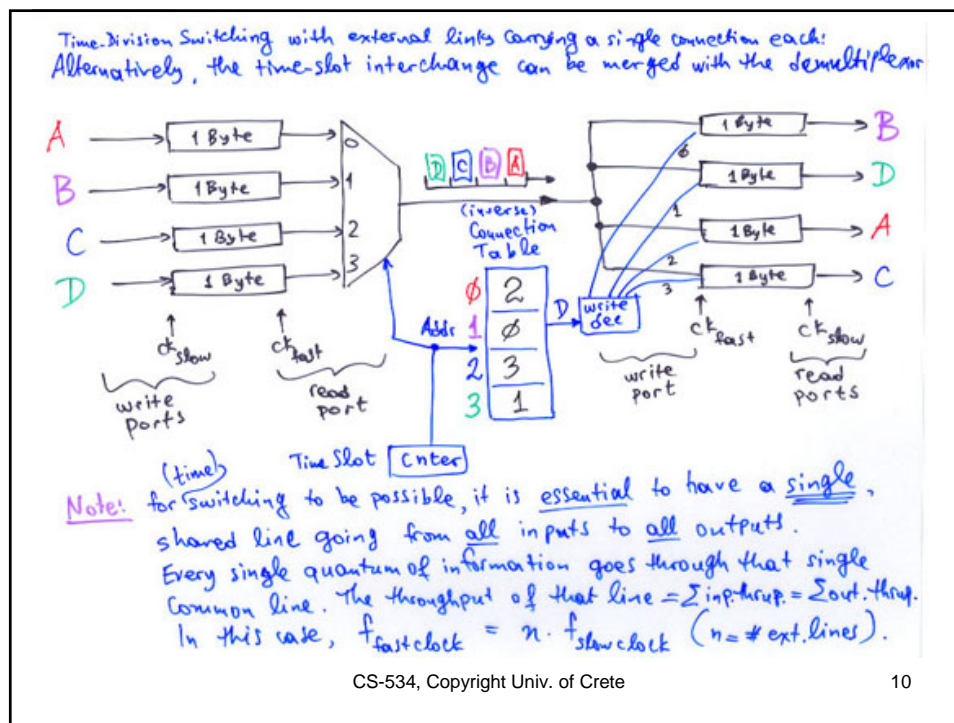 Time-Division Switching with external links carrying a single connection each:
Alternatively, the time-slot interchange can be merged with the demultiplexor
A
1 Byte
0
B
1 Byte
1
C
1 Byte
2
D
1 Byte
3
ck slow
ck fast
write ports
read port
D C B A
(inverse)
Connection
Table
Addr
Ø 2
1 Ø
2 3
3 1
D
write dec
Ø
1
2
3
1 Byte
B
1 Byte
D
1 Byte
A
1 Byte
C
ck fast
ck slow
write port
read ports
Time Slot Cnter
(time)
Note: for switching to be possible, it is essential to have a single,
shared line going from all inputs to all outputs.
Every single quantum of information goes through that single
common line. The throughput of that line = Σinp.thrup. = Σout.thrup.
In this case, f fast clock = n · f slow clock (n = # ext. lines).
CS-534, Copyright Univ. of Crete
10